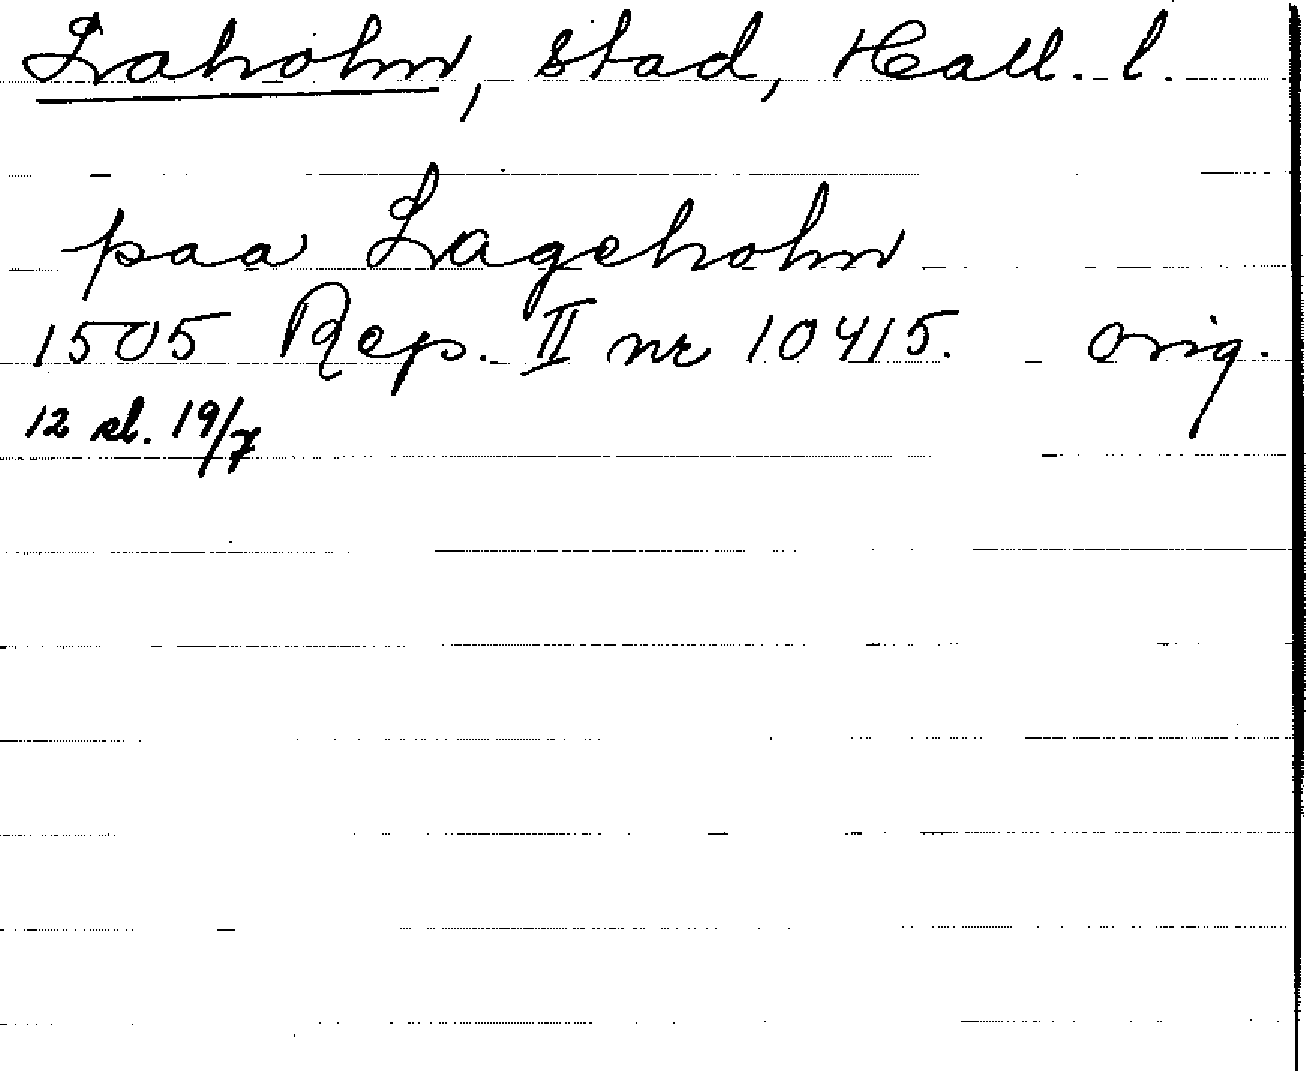 Laholm, stad, Hall. l.
paa Lageholm
1505 Rep. II nr 10415. orig.
12 sl. 19/7